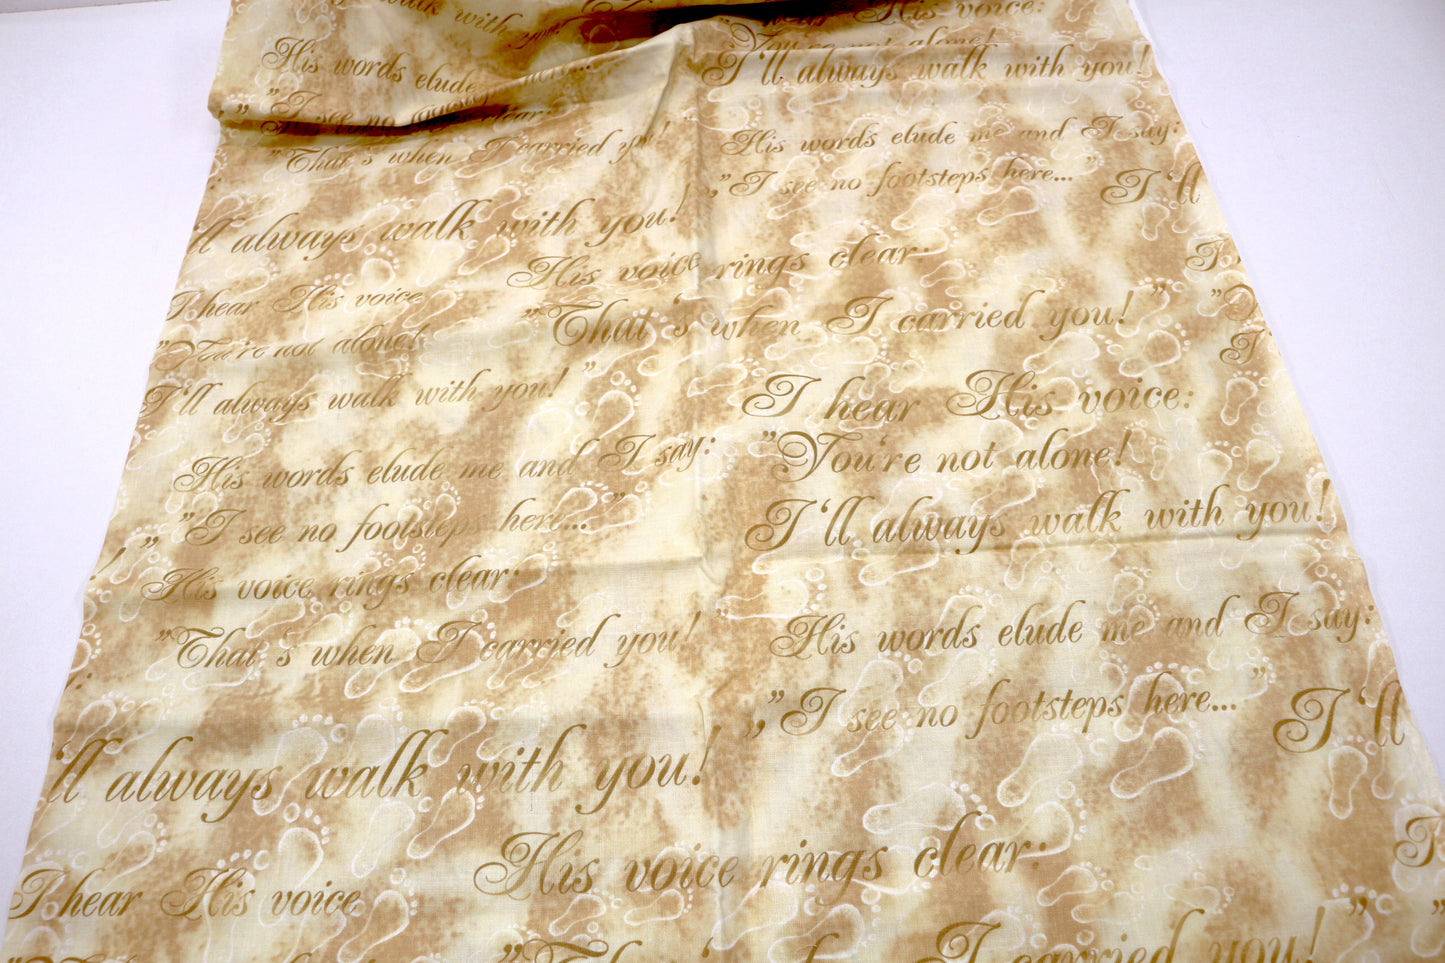 walk with you!
His voice:
You're not alone!
His words elude
I'll always walk with you!
"I see no
clear:
His words elude me and I say:
"That's when I carried
,,"I see no footsteps here..."
I'll
'll always walk with you!
His voice rings clear:
I hear His voice
"That's when I carried you!"
"You're not alone!
I'll always walk with you!"
I hear His voice:
"You're not alone!
His words elude me and I say:
I'll always walk with you!
"I see no footsteps here..."
!"
His voice rings clear:
His words elude me and I say:
"That's when I carried you!
,,"I see no footsteps here..."
I'll
'll always walk with you!
His voice rings clear:
I hear His voice
I carried you!"